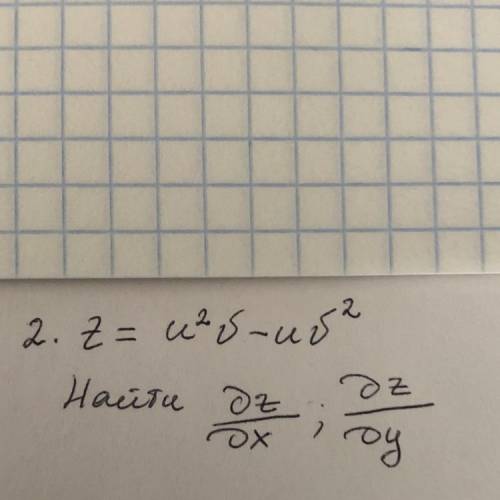 2. z = u²v - uv²
Найти ∂z/∂x ; ∂z/∂y